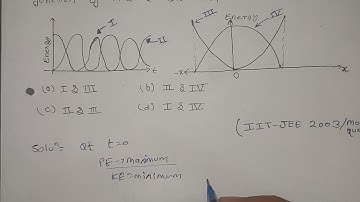 I
III
IV
Energy
Energy
II
t
-x
0
x
(a) I & III
(b) II & IV
(c) II & III
(d) I & IV
(IIT-JEE 2003/
Soluⁿ: at t=0
PE → maximum
KE = minimum